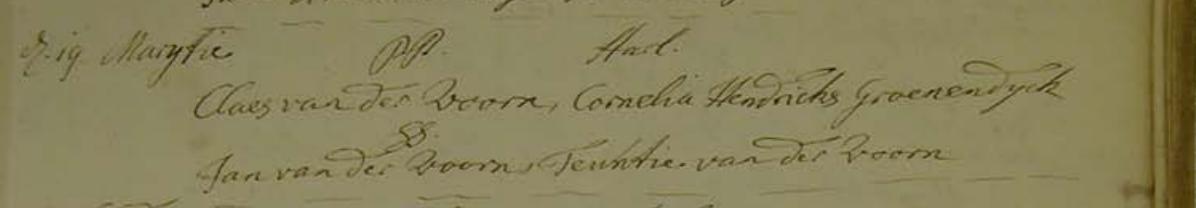 d. 19 Marytie PP. Harl.
Claes van der Voorn, Cornelia Hendricks Groenendyck
SS.
Jan van der Voorn, Teuntie van der Voorn